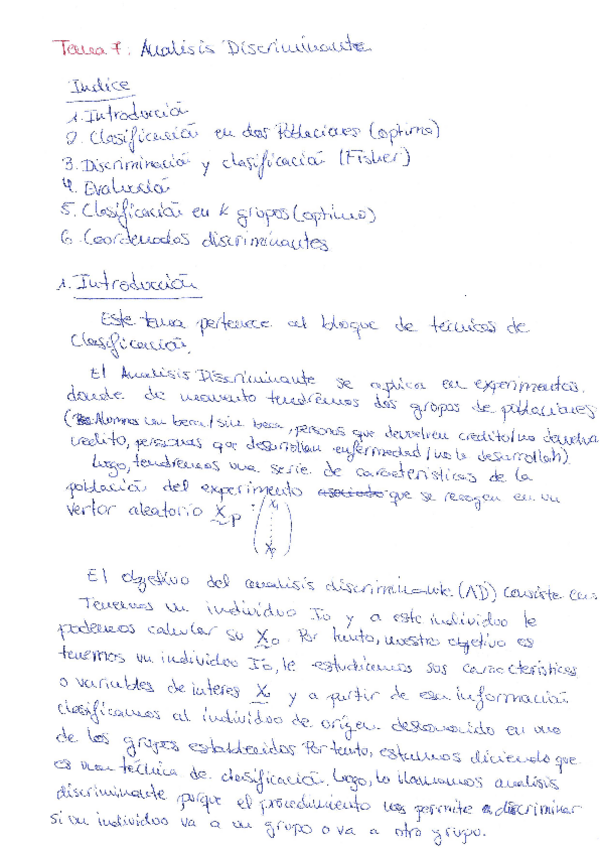 Tema 7: Analisis Discriminante
Indice
1. Introducción
2. Clasificación en dos Poblaciones (optima)
3. Discriminación y clasificación (Fisher)
4. Evaluación
5. Clasificación en k grupos (optimo)
6. Coordenadas discriminantes
1. Introducción
Este tema pertenece al bloque de técnicas de
Clasificación.
El Analisis Discriminante se aplica en experimentos
donde de momento tendremos dos grupos de poblaciones
(Alumnos con beca/sin beca, personas que devuelven credito/no devuelven
credito, personas que desarrollan enfermedad/no la desarrollan)
Luego, tendremos una serie de características de la
población del experimento que se recogen en un
vector aleatorio X p : (X₁ ... Xp)
El objetivo del analisis discriminante (AD) consiste en:
Tenemos un individuo Io y a este individuo le
podemos calcular su Xo. Por tanto, nuestro objetivo es
tenemos un individuo Io, le estudiamos sus características
o variables de interes X y a partir de esa información
clasificamos al individuo de origen desconocido en uno
de los grupos establecidos Por tanto, estamos diciendo que
es una técnica de clasificación. Luego, lo llamamos analisis
discriminante porque el procedimiento nos permite discriminar
si un individuo va a un grupo o va a otro grupo.